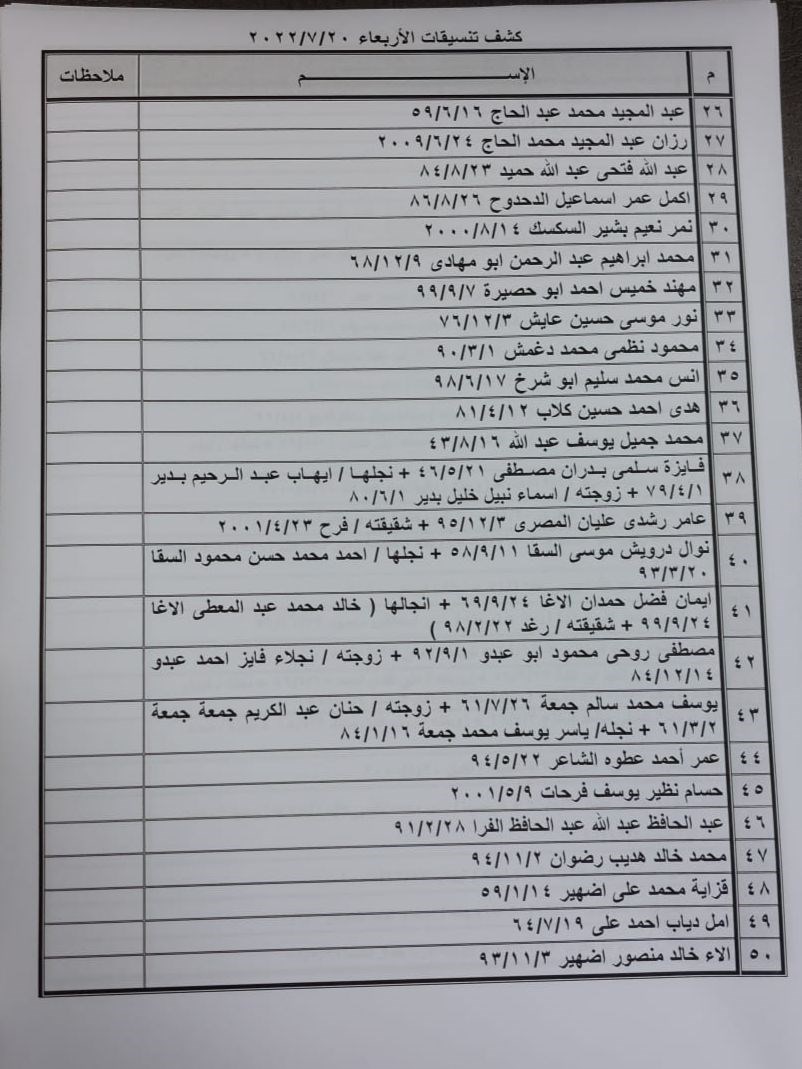 كشف تنسيقات الأربعاء ٢٠٢٢/٧/٢٠
م الإســـــــم ملاحظات
٢٦ عبد المجيد محمد عبد الحاج ٥٩/٦/١٦
٢٧ رزان عبد المجيد محمد الحاج ٢٠٠٩/٦/٢٤
٢٨ عبد الله فتحى عبد الله حميد ٨٤/٨/٢٣
٢٩ اكمل عمر اسماعيل الدحدوح ٨٦/٨/٢٦
٣٠ نمر نعيم بشير السكسك ٢٠٠٠/٨/١٤
٣١ محمد ابراهيم عبد الرحمن ابو مهادى ٦٨/١٢/٩
٣٢ مهند خميس احمد ابو حصيرة ٩٩/٩/٧
٣٣ نور موسى حسين عايش ٧٦/١٢/٣
٣٤ محمود نظمى محمد دغمش ٩٠/٣/١
٣٥ انس محمد سليم ابو شرخ ٩٨/٦/١٧
٣٦ هدى احمد حسين كلاب ٨١/٤/١٢
٣٧ محمد جميل يوسف عبد الله ٤٣/٨/١٦
٣٨ فايزة سلمى بدران مصطفى ٤٦/٥/٢١ + نجلها / ايهاب عبد الرحيم بدير
٧٩/٤/١ + زوجته / اسماء نبيل خليل بدير ٨٠/٦/١
٣٩ عامر رشدى عليان المصرى ٩٥/١٢/٣ + شقيقته / فرح ٢٠٠١/٤/٢٣
٤٠ نوال درويش موسى السقا ٥٨/٩/١١ + نجلها / احمد محمد حسن محمود السقا
٩٣/٣/٢٠
٤١ ايمان فضل حمدان الاغا ٦٩/٩/٢٤ + انجالها ( خالد محمد عبد المعطى الاغا
٩٩/٩/٢٤ + شقيقته / رغد ٩٨/٢/٢٢ )
٤٢ مصطفى روحى محمود ابو عبدو ٩٢/٩/١ + زوجته / نجلاء فايز احمد عبدو
٨٤/١٢/١٤
٤٣ يوسف محمد سالم جمعة ٦١/٧/٢٦ + زوجته / حنان عبد الكريم جمعة جمعة
٦١/٣/٢ + نجله/ ياسر يوسف محمد جمعة ٨٤/١/١٦
٤٤ عمر أحمد عطوه الشاعر ٩٤/٥/٢٢
٤٥ حسام نظير يوسف فرحات ٢٠٠١/٥/٩
٤٦ عبد الحافظ عبد الله عبد الحافظ الفرا ٩١/٢/٢٨
٤٧ محمد خالد هديب رضوان ٩٤/١١/٢
٤٨ قزاية محمد على اضهير ٥٩/١/١٤
٤٩ امل دياب احمد على ٦٤/٧/١٩
٥٠ الاء خالد منصور اضهير ٩٣/١١/٣